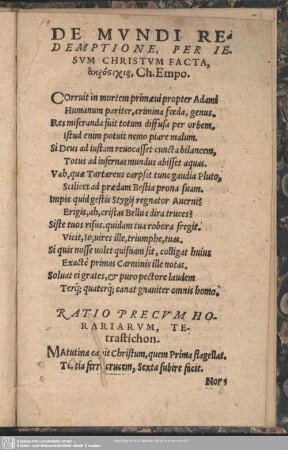 DE MVNDI RE-
DEMPTIONE, PER IE-
SVM CHRISTVM FACTA,
Ch. Empo.
Corruit in mortem primæui propter Adami
Humanum pariter, crimina fœda, genus.
Res miseranda fuit totum diffusa per orbem.
Istud enim potuit nemo piare malum.
Si Deus ad iustam reuocasset cuncta bilancem,
Totus ad infernas mundus abisset aquas.
Vah, quæ Tartareus carpsit tunc gaudia Pluto,
Scilicet ad prædam Bestia prona suam.
Impie quid gestis Stygij regnator Auerni?
Erigis, ah, cristas Bellua dira truces?
Siste tuos risus. quidam tua robora fregit.
Vicit, Io, uires ille, triumphe, tuas.
Si quis nosse uolet quisnam sit, colligat huius
Exacte primas Carminis ille notas.
Soluat ei grates, & puro pectore laudem
Terq; quaterq; canat gnauiter omnis homo.
RATIO PRECVM HO-
RARIARVM, TE-
trastichon.
MAtutina capit Christum, quem Prima flagellat.
Tertia fert crucem, Sexta subire facit.